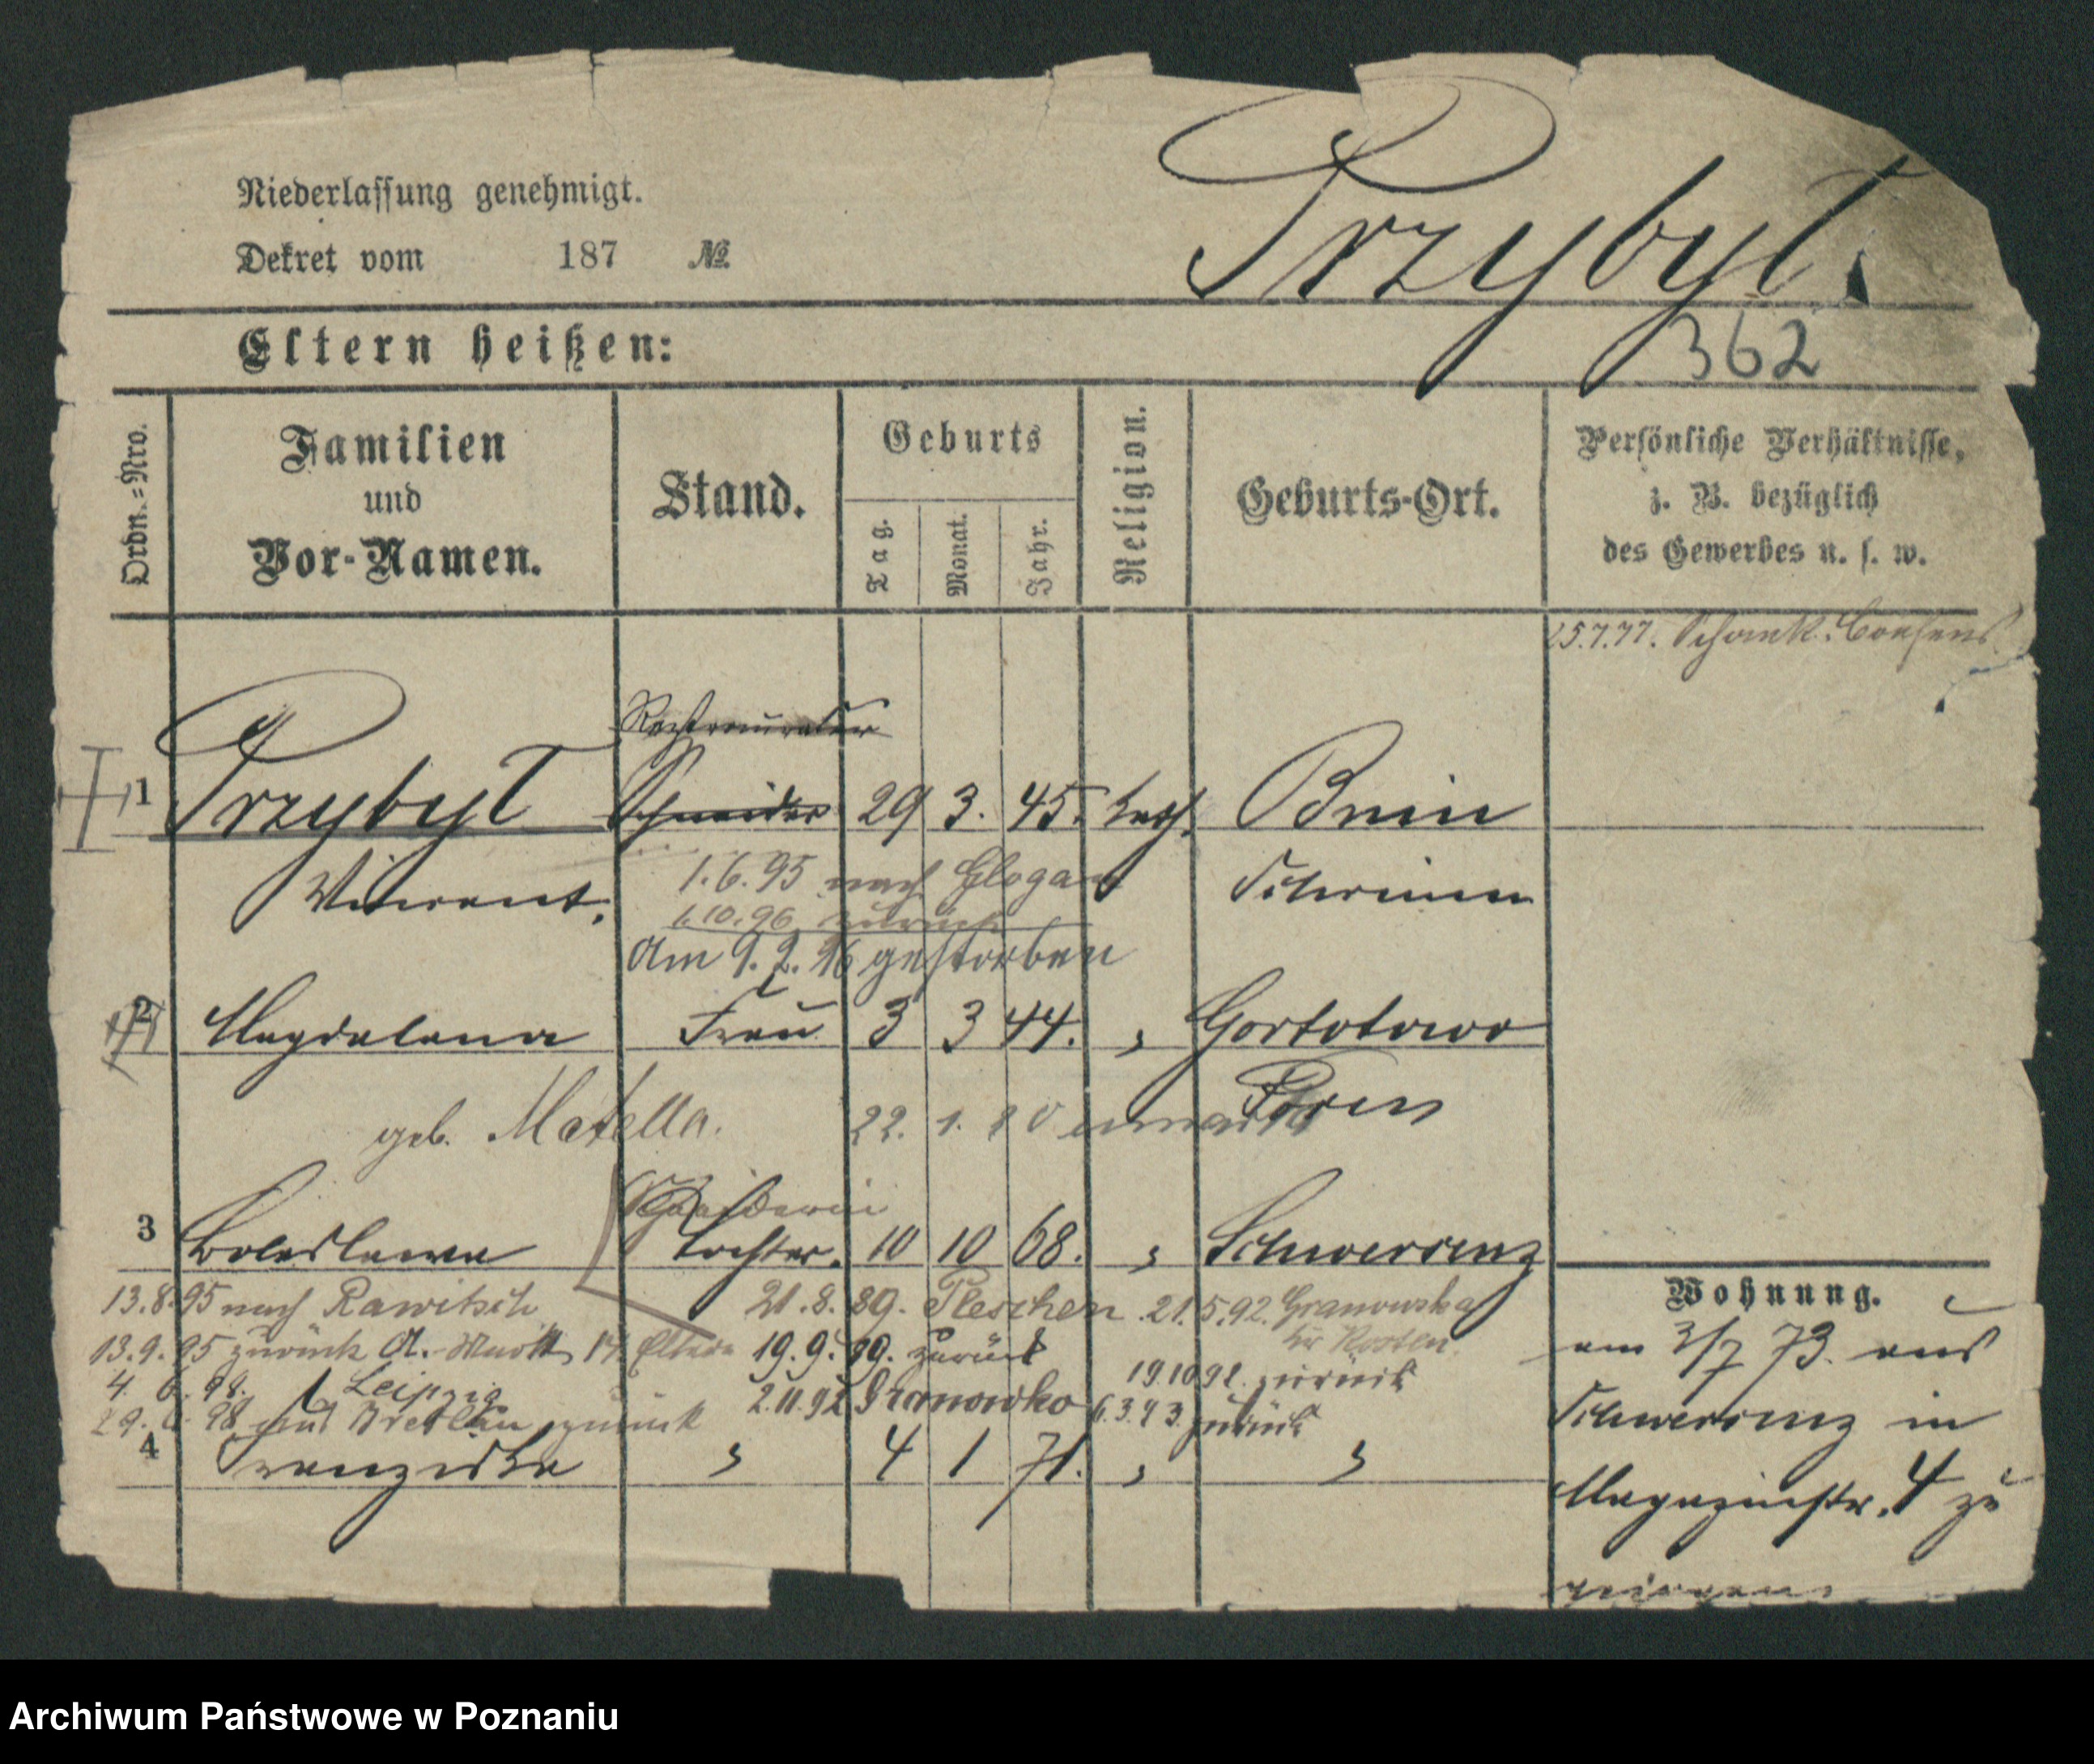 Niederlassung genehmigt.
Dekret vom 187 №
Przybyl.
362
Eltern heißen:
Ordn.=Nro.
Familien
und
Vor-Namen.
Stand.
Geburts
Tag.
Monat.
Jahr.
Religion.
Geburts-Ort.
Persönliche Verhältnisse,
z. B. bezüglich
des Gewerbes u. s. w.
25.7.77. Schank-Consens
Restaurateur
1 Przybyl Schneider 29 3. 45. kath. Bnin
Vincent. 1.6.95 nach Glogau Schrimm
1.10.96 zurück
Am 9.2.96 gestorben
2 Magdalena Frau 3 3 44. " Gortatowo
Posen
geb. Matella. 22. 1.
3 Boleslawa Tochter. 10 10 68. " Schwersenz
13.8.95 nach Rawitsch 21.8.89. Pleschen 21.5.92. Granowska
Kr Kosten.
13.9.95 zurück A. Markt Eltern 19.9.89. zurück
19.10.92. zurück
4. 6. 98. Leipzig 2.11.92 Granowko 6.3.93 zurück
29. 6. 98 aus Breslau zurück
4 Franziska " 4 1 71. " "
Wohnung.
am 3/7 73. aus
Schwersenz in
Magazinstr. 4 zu